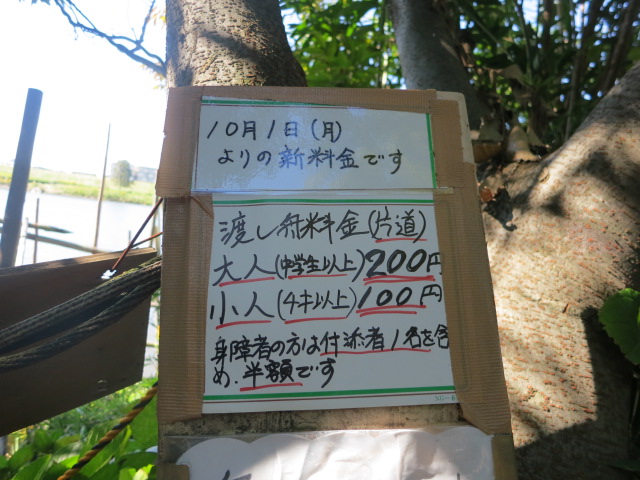 10月1日(月)
よりの新料金です
渡し舟料金(片道)
大人(中学生以上)200円
小人(4才以上)100円
身障者の方は付添者1名を含
め、半額です